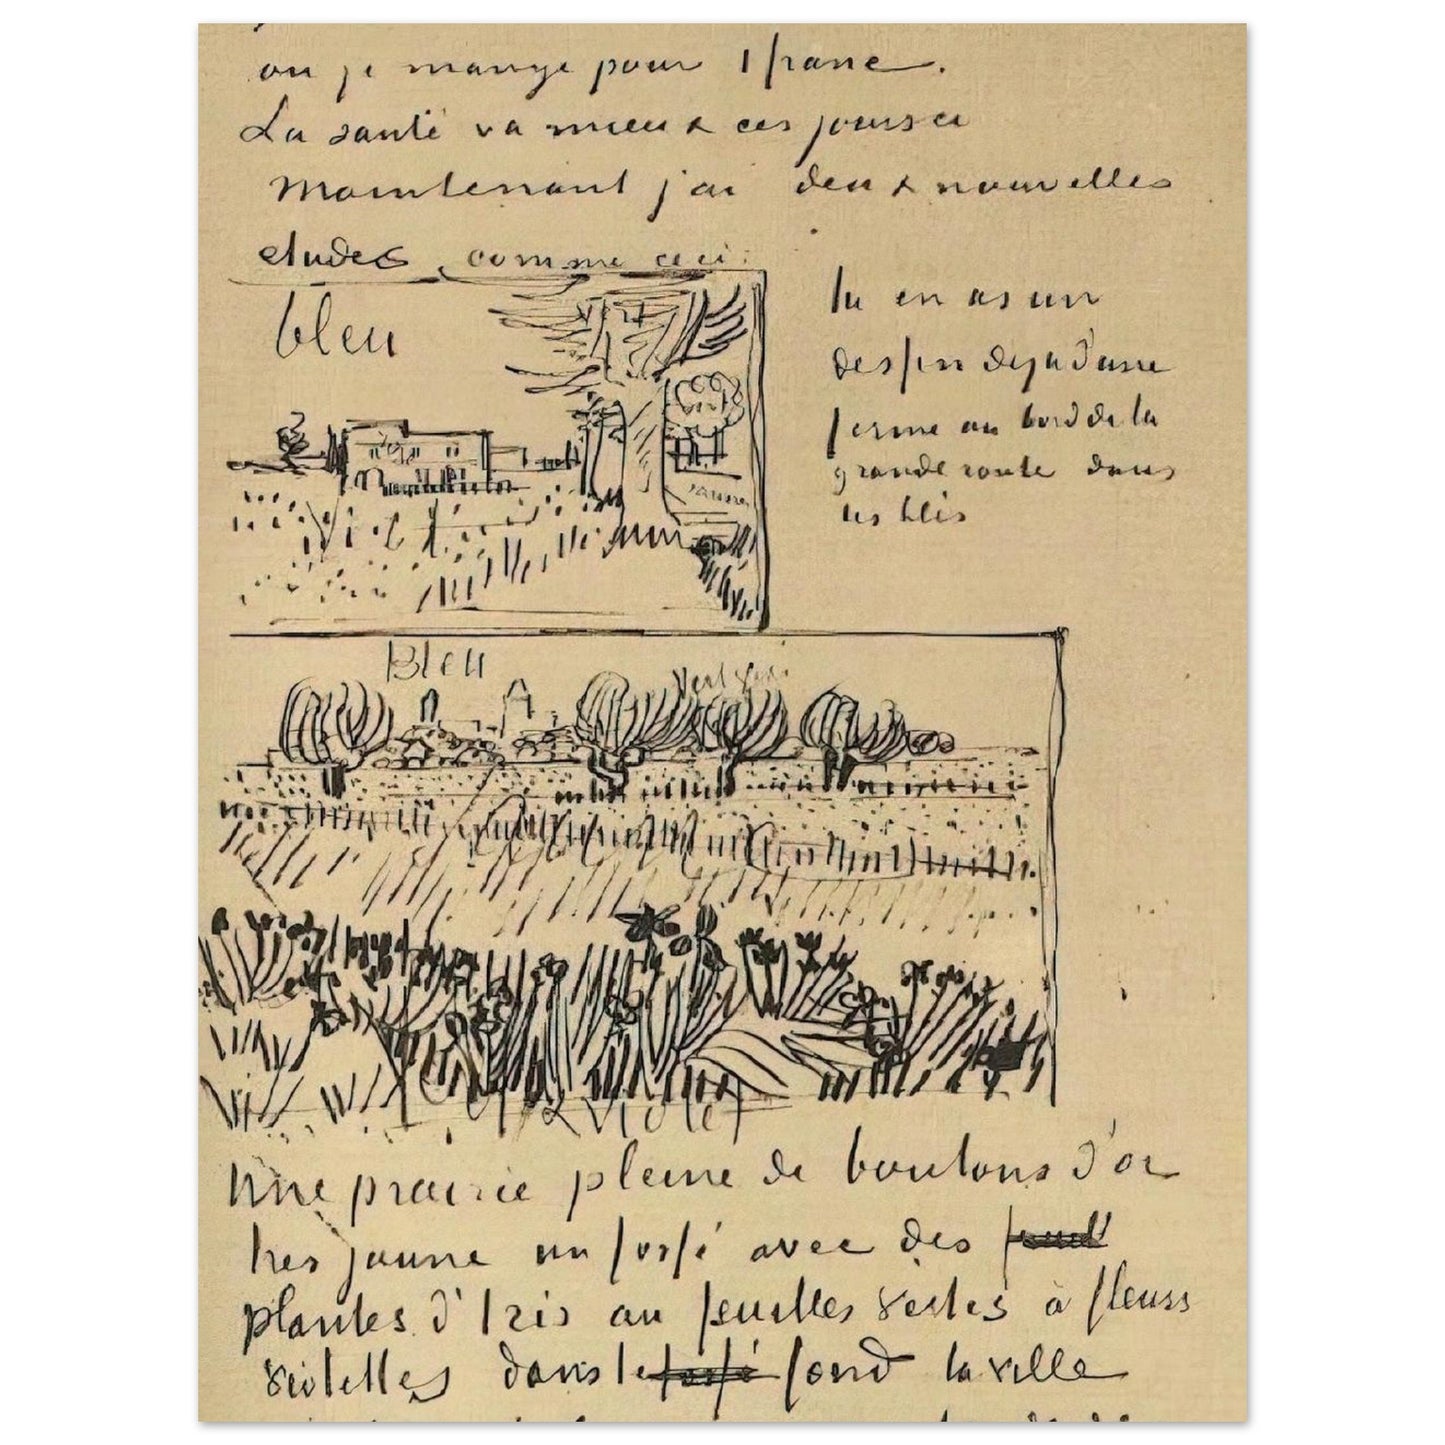 ou je mange pour 1 franc.
La santé va mieux ces jours ci
Maintenant j'ai deux nouvelles
etudes comme ceci:
bleu
jaune
tu en as un
dessin deja d'une
ferme au bord de la
grande route dans
les blés
Bleu
Vert gris
violet
Une prairie pleine de boutons d'or
tres jaune un fossé avec des
plantes d'Iris au feuilles vertes à fleurs
violettes dans le fossé fond la ville